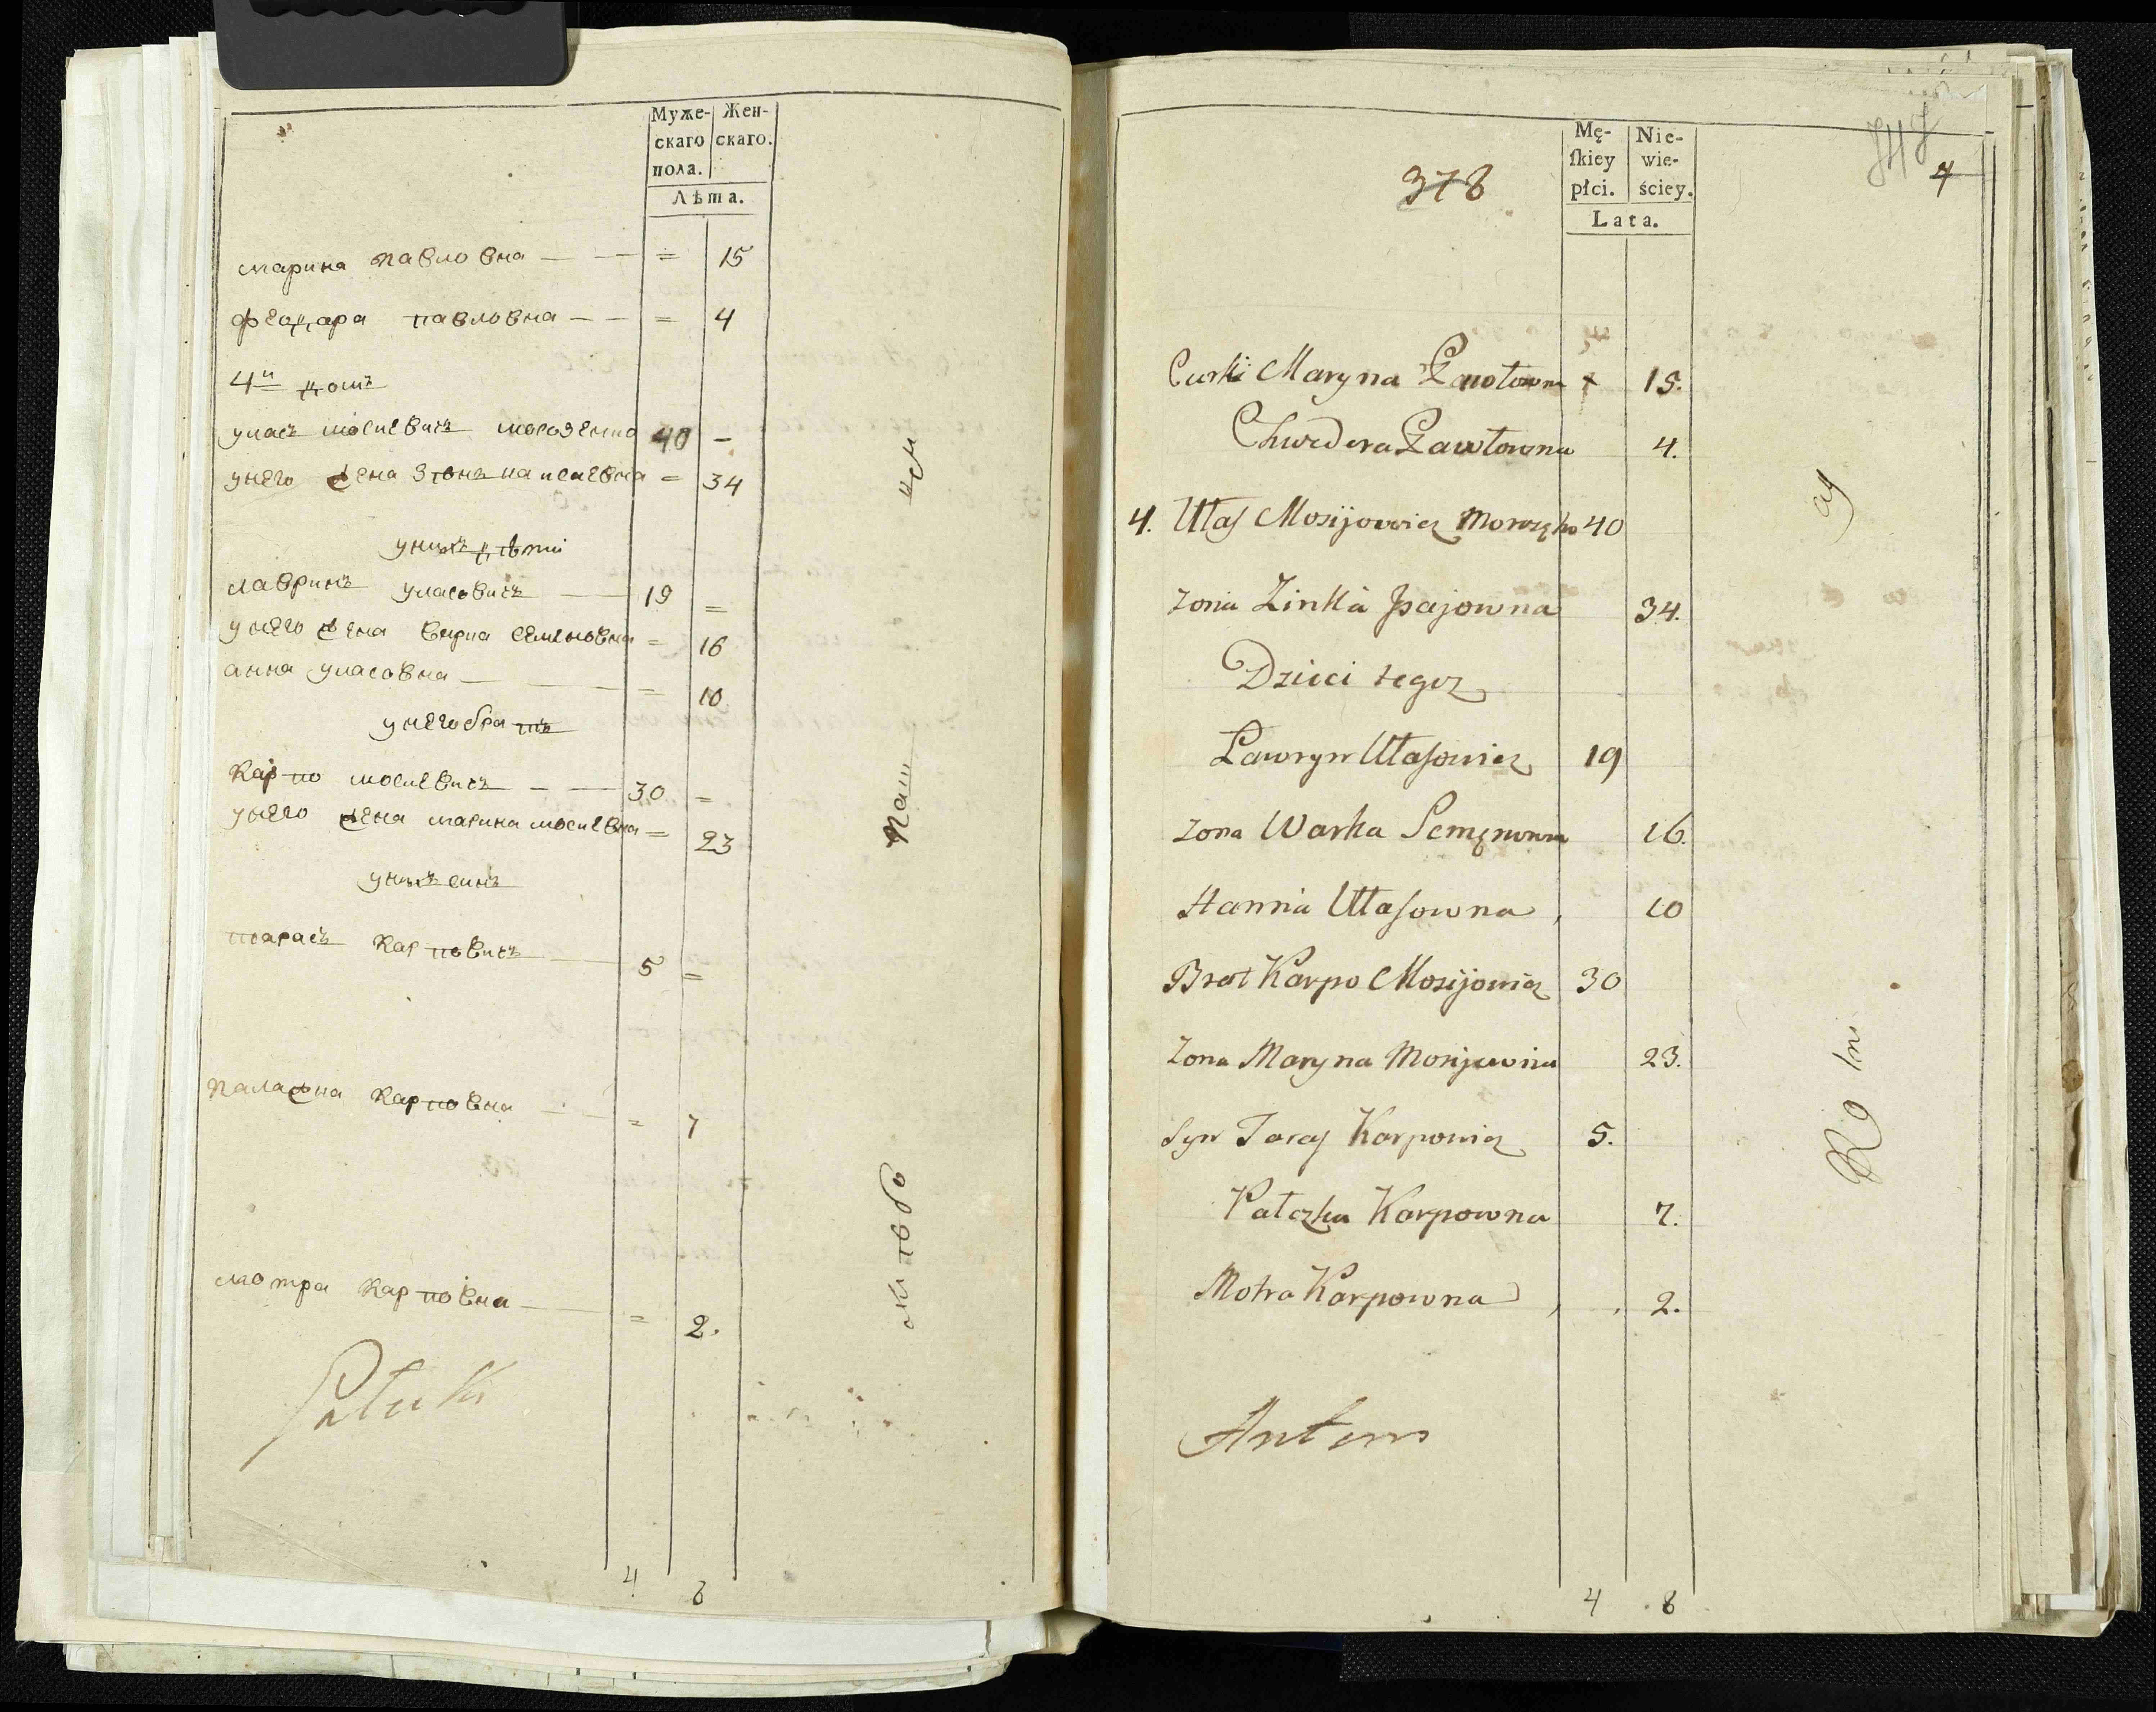 Муже-
скаго
пола.
Жен-
скаго.
Лѣта.
марина павловна — — = 15
феодара павловна — — = 4
4й домъ
уласъ мосиевичъ морозенко 40 –
унего жена зѣнька исаевна = 34
унихъ дѣти
лавринъ уласовичъ — 19 =
унего жена варка семеновна = 16
анна уласовна — — — = 10
унего братъ
Карпо мосиевичъ – — 30 =
унего жена марина мосиевна = 23
унихъ синъ
тарасъ карповичъ — 5 =
палажка карповна — — = 7
мотра карповна — = 2.
4 8
378
4
Mę-
ſkiey
płci.
Nie-
wie-
ściey.
Lata.
Curki Maryna Pawłowna + 15.
Chwedora Pawłowna 4.
4. Ułas Mosijowicz Morozęko 40
Zona Zinka Jsajowna 34.
Dzieci tegoz
Ławryn Ułasowicz 19
Zona Warka Semęnowna 16.
Hanna Ułasowna, 10
Brat Karpo Mosijowicz 30
Zona Maryna Mosijowna 23.
Syn Taras Karpowicz 5.
Pałazka Karpowna 7.
Motra Karpowna, , 2.
Antoni
4 8